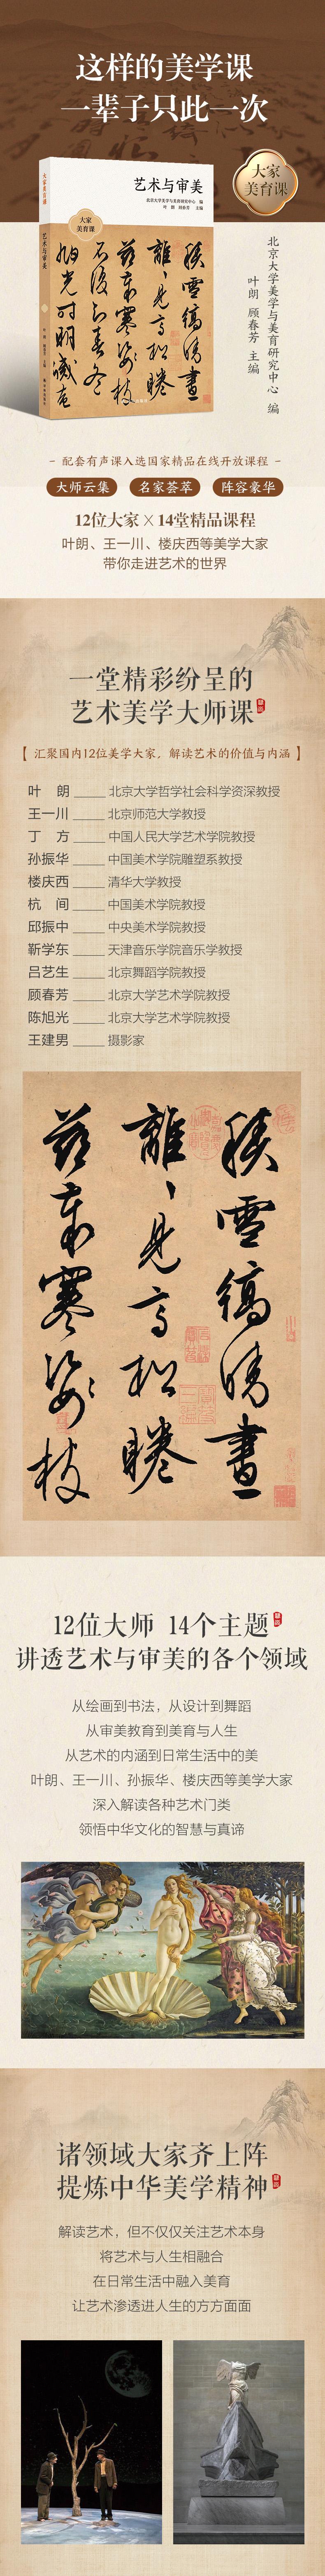 这样的美学课
一辈子只此一次
大家
美育课
大家美育课
艺术与审美
北京大学美学与美育研究中心 编
叶朗 顾春芳 主编
大家
美育课
艺术与审美
叶朗 顾春芳 主编
积雪缟晴昼
离离见高松睠
兹东寒姿枝
北京大学美学与美育研究中心 编
叶朗 顾春芳 主编
- 配套有声课入选国家精品在线开放课程 -
大师云集 名家荟萃 阵容豪华
12位大家 X 14堂精品课程
叶朗、王一川、楼庆西等美学大家
带你走进艺术的世界
一堂精彩纷呈的
艺术美学大师课
【 汇聚国内12位美学大家，解读艺术的价值与内涵 】
叶 朗 _____ 北京大学哲学社会科学资深教授
王一川 _____ 北京师范大学教授
丁 方 _____ 中国人民大学艺术学院教授
孙振华 _____ 中国美术学院雕塑系教授
楼庆西 _____ 清华大学教授
杭 间 _____ 中国美术学院教授
邱振中 _____ 中央美术学院教授
靳学东 _____ 天津音乐学院音乐学教授
吕艺生 _____ 北京舞蹈学院教授
顾春芳 _____ 北京大学艺术学院教授
陈旭光 _____ 北京大学艺术学院教授
王建男 _____ 摄影家
積雪縞晴晝
離離見高松睠
茲東寒姿枝
12位大师 14个主题
讲透艺术与审美的各个领域
从绘画到书法，从设计到舞蹈
从审美教育到美育与人生
从艺术的内涵到日常生活中的美
叶朗、王一川、孙振华、楼庆西等美学大家
深入解读各种艺术门类
领悟中华文化的智慧与真谛
诸领域大家齐上阵
提炼中华美学精神
解读艺术，但不仅仅关注艺术本身
将艺术与人生相融合
在日常生活中融入美育
让艺术渗透进人生的方方面面